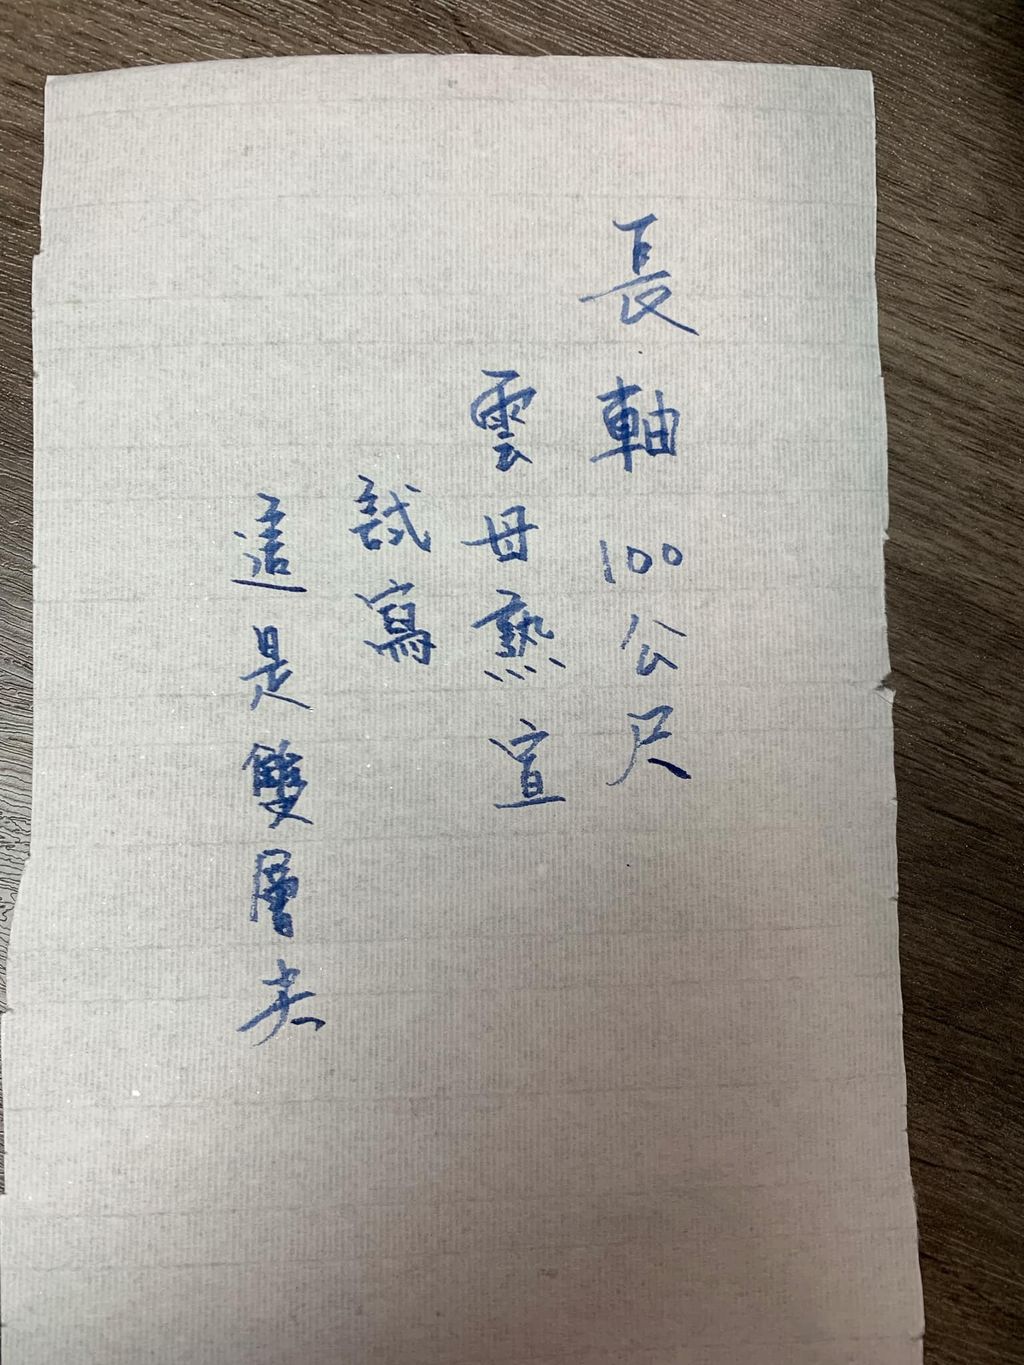 長軸100公尺
雲母熟宣
試寫
這是雙層夾